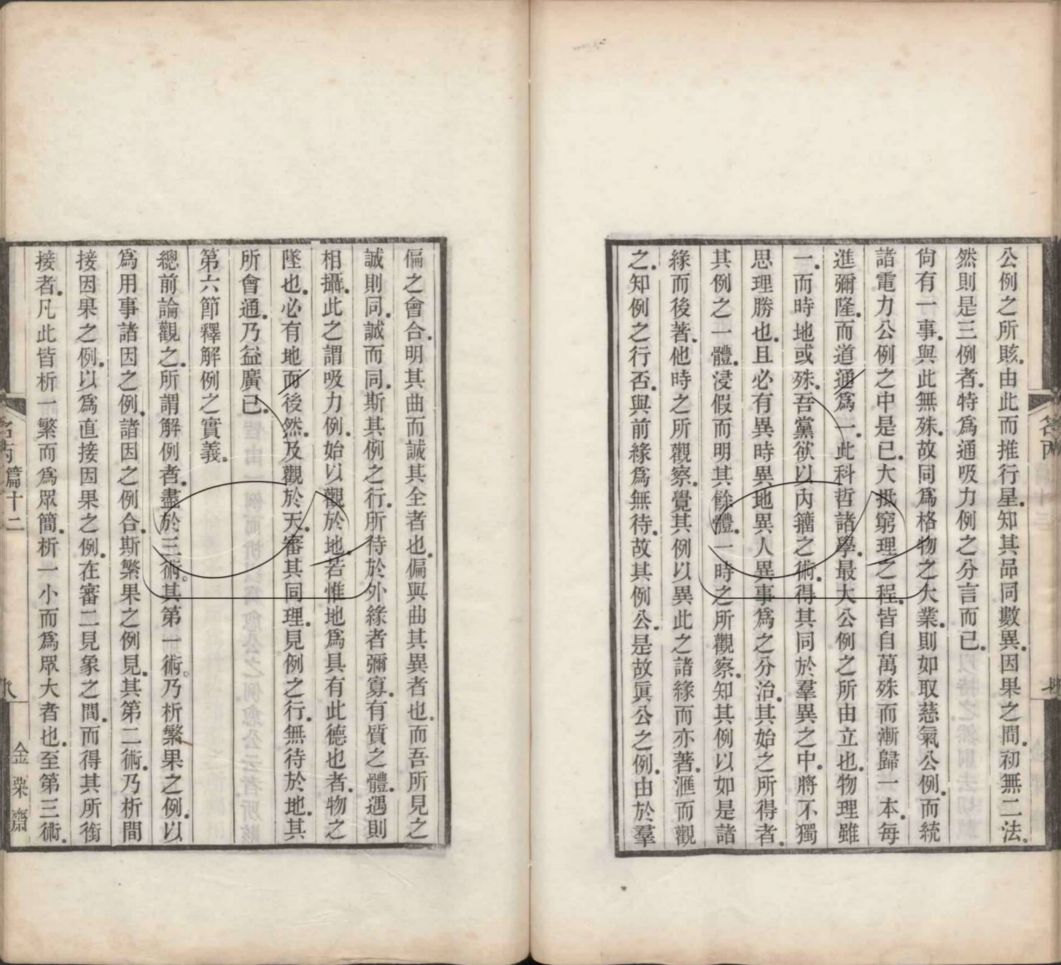 公例之所賅.由此而推行星.知其品同數異.因果之間.初無二法.
然則是三例者.特為通吸力例之分言而已.
尙有一事.與此無殊.故同爲格物之大業.則如取慈氣公例.而統
諸電力公例之中是已.大抵窮理之程.皆自萬殊而漸歸一本.每
進彌隆.而道通爲一.此科哲諸學.最大公例之所由立也.物理雖
一.而時地或殊.吾黨欲以內籀之術.得其同於羣異之中.將不獨
思理勝也.且必有異時異地異人異事爲之分治.其始之所得者.
其例之一體.浸假而明其餘體.一時之所觀察.知其例以如是諸
緣而後著.他時之所觀察.覺其例以異此之諸緣而亦著.滙而觀
之.知例之行否.與前緣爲無待.故其例公.是故眞公之例.由於羣
偏之會合.明其曲而誠其全者也.偏與曲其異者也.而吾所見之
誠則同.誠而同.斯其例之行.所待於外緣者彌寡.有質之體.遇則
相攝.此之謂吸力例.始以觀於地.若惟地爲具有此德也者.物之
墜也.必有地而後然.及觀於天.審其同理.見例之行.無待於地.其
所會通.乃益廣已.
第六節釋解例之實義.
總前論觀之.所謂解例者.盡於三術.其第一術.乃析繁果之例.以
爲用事諸因之例.諸因之例合.斯繁果之例見.其第二術.乃析間
接因果之例.以爲直接因果之例.在審二見象之間.而得其所銜
接者.凡此皆析一繁而爲眾簡.析一小而爲眾大者也.至第三術.
名丙
篇十二
金粟齋